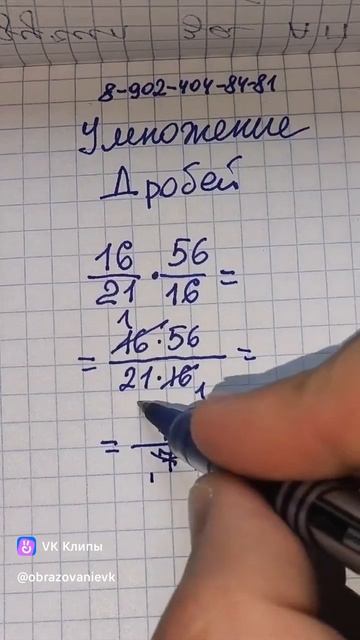 8-902-404-84-81
Умножение
Дробей
16/21 · 56/16 =
1
= 16·56/21·16 =
1
=
VK Клипы
@obrazovanievk